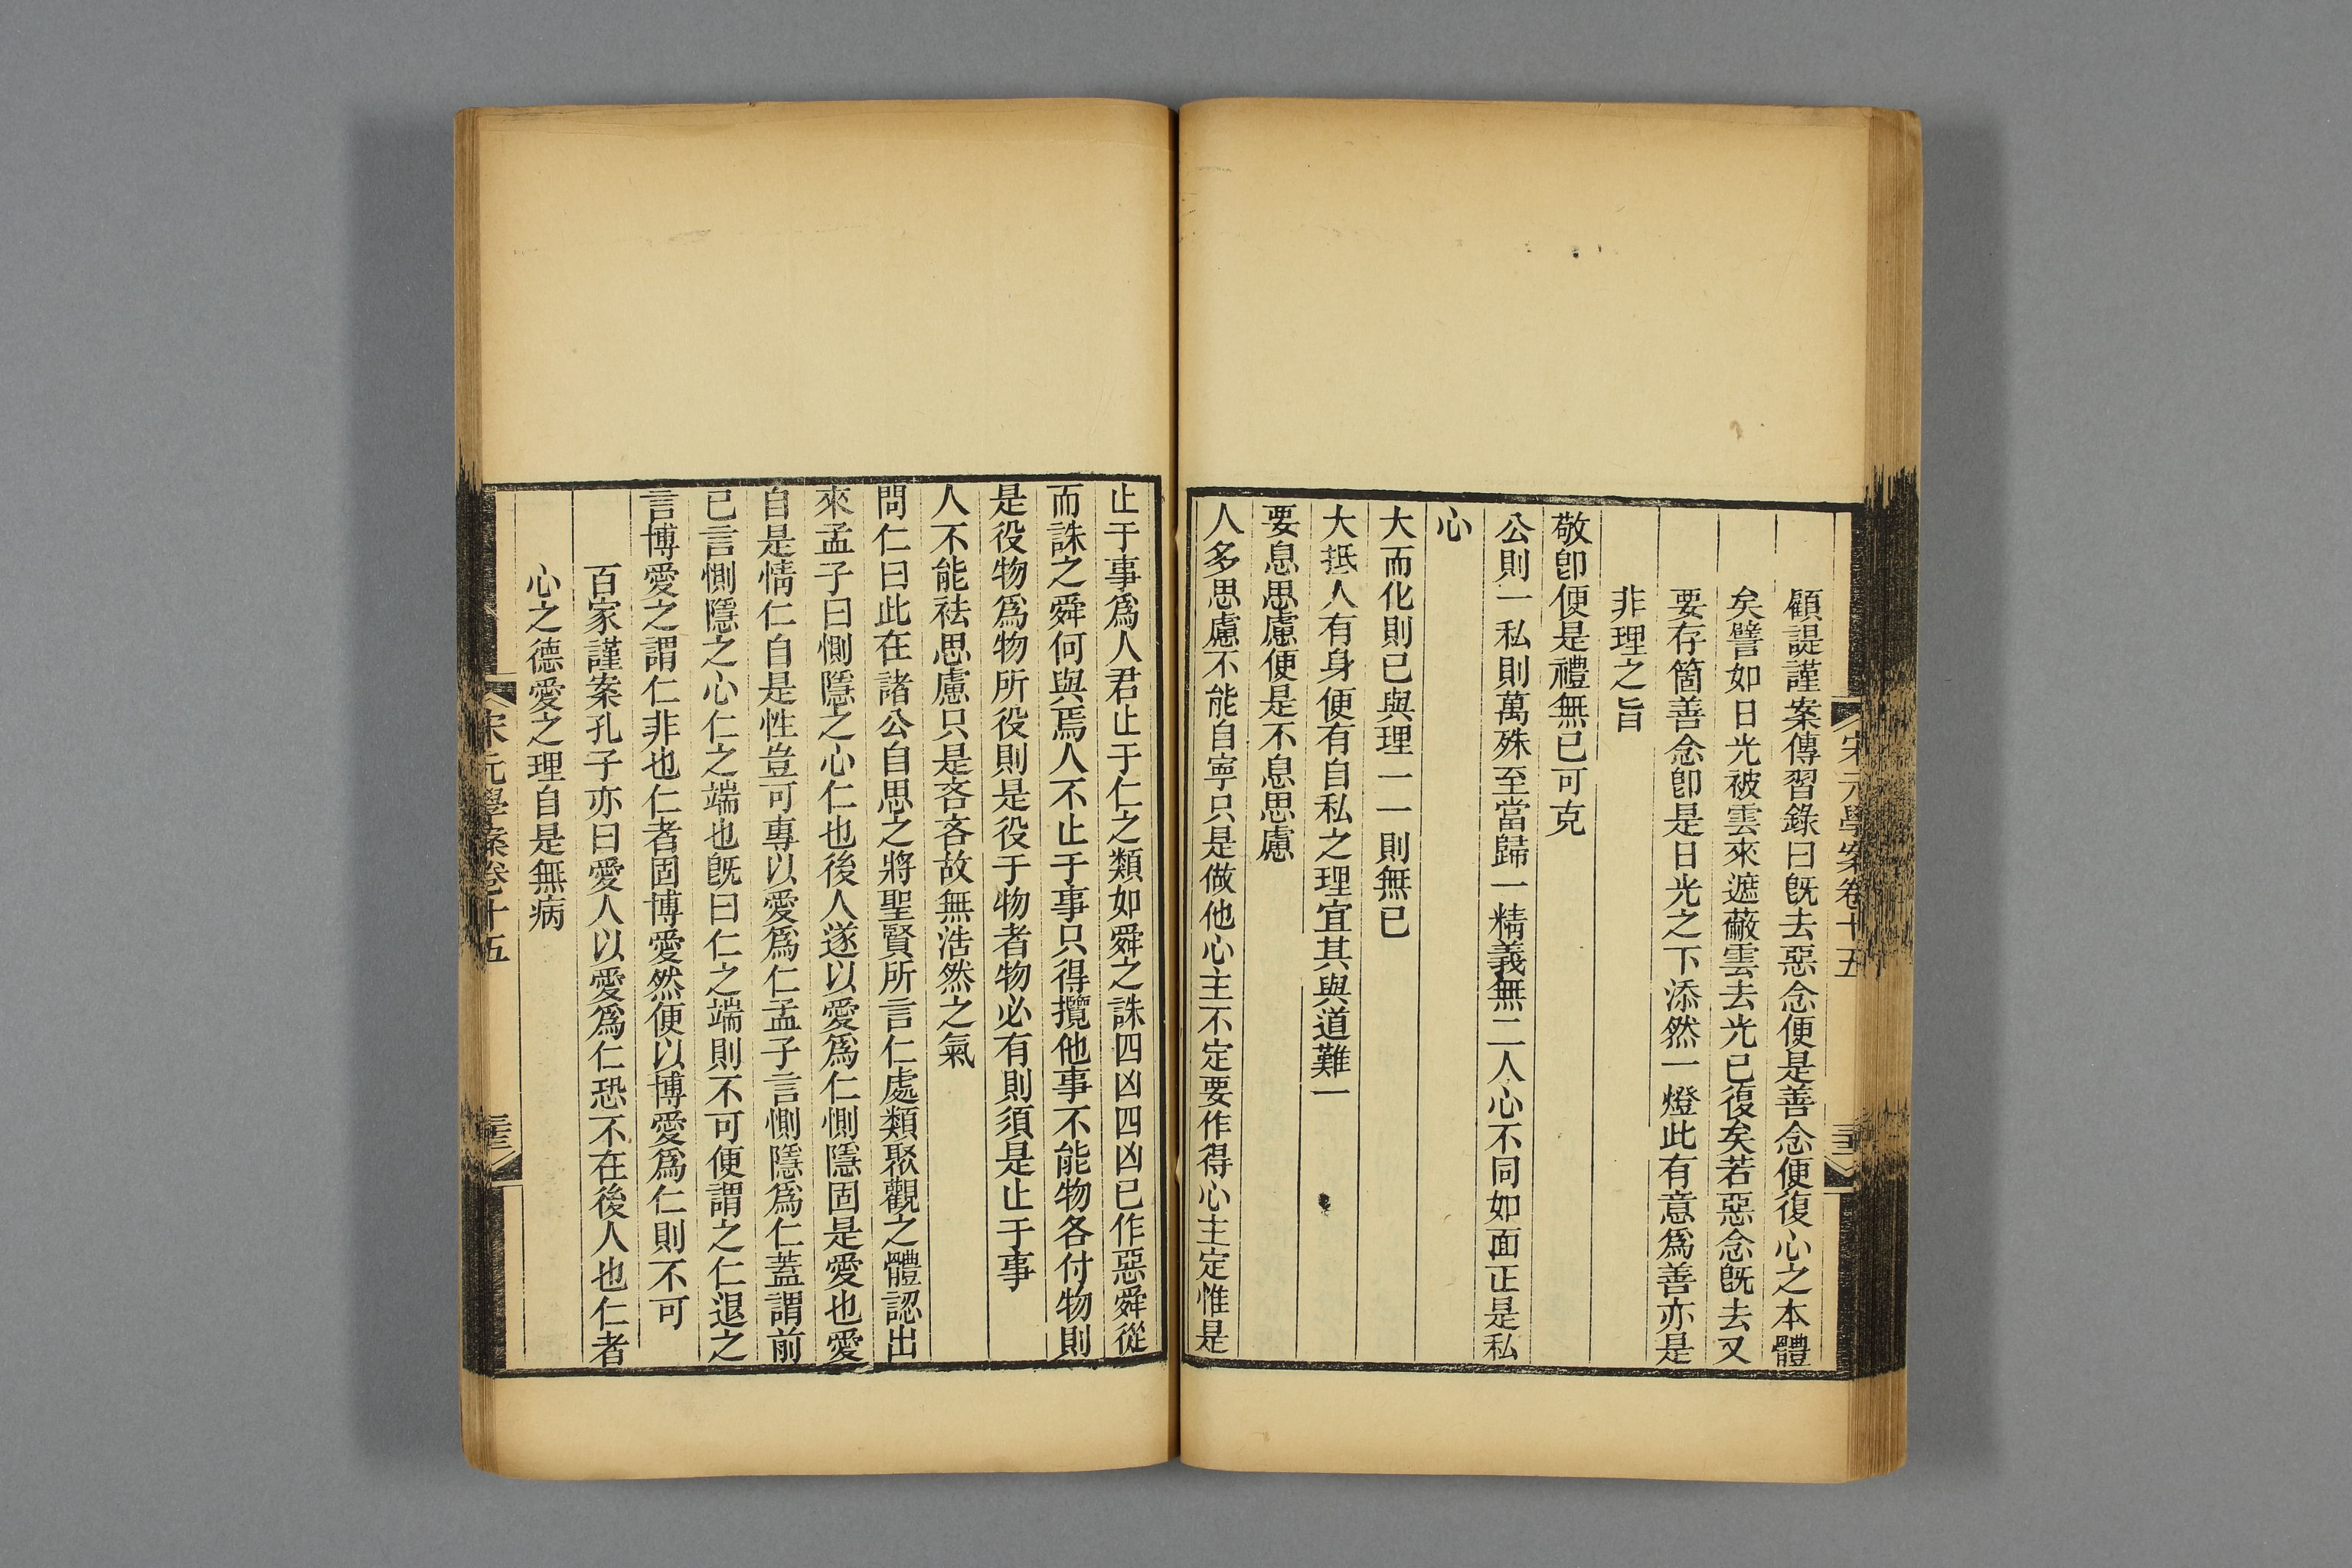 顧諟謹案傳習錄曰旣去惡念便是善念便復心之本體
矣譬如日光被雲來遮蔽雲去光已復矣若惡念旣去又
要存箇善念卽是日光之下添然一燈此有意爲善亦是
非理之旨
敬卽便是禮無已可克
公則一私則萬殊至當歸一精義無二人心不同如面正是私
心
大而化則已與理一一則無已
大抵人有身便有自私之理宜其與道難一
要息思慮便是不息思慮
人多思慮不能自寧只是做他心主不定要作得心主定惟是
宋元學案卷十五
止于事爲人君止于仁之類如舜之誅四凶四凶已作惡舜從
而誅之舜何與焉人不止于事只得攬他事不能物各付物則
是役物爲物所役則是役于物者物必有則須是止于事
人不能祛思慮只是吝吝故無浩然之氣
問仁曰此在諸公自思之將聖賢所言仁處類聚觀之體認出
來孟子曰惻隱之心仁也後人遂以愛爲仁惻隱固是愛也愛
自是情仁自是性豈可專以愛爲仁孟子言惻隱爲仁蓋謂前
已言惻隱之心仁之端也旣曰仁之端則不可便謂之仁退之
言博愛之謂仁非也仁者固博愛然便以博愛爲仁則不可
百家謹案孔子亦曰愛人以愛爲仁恐不在後人也仁者
心之德愛之理自是無病
宋元學案卷十五